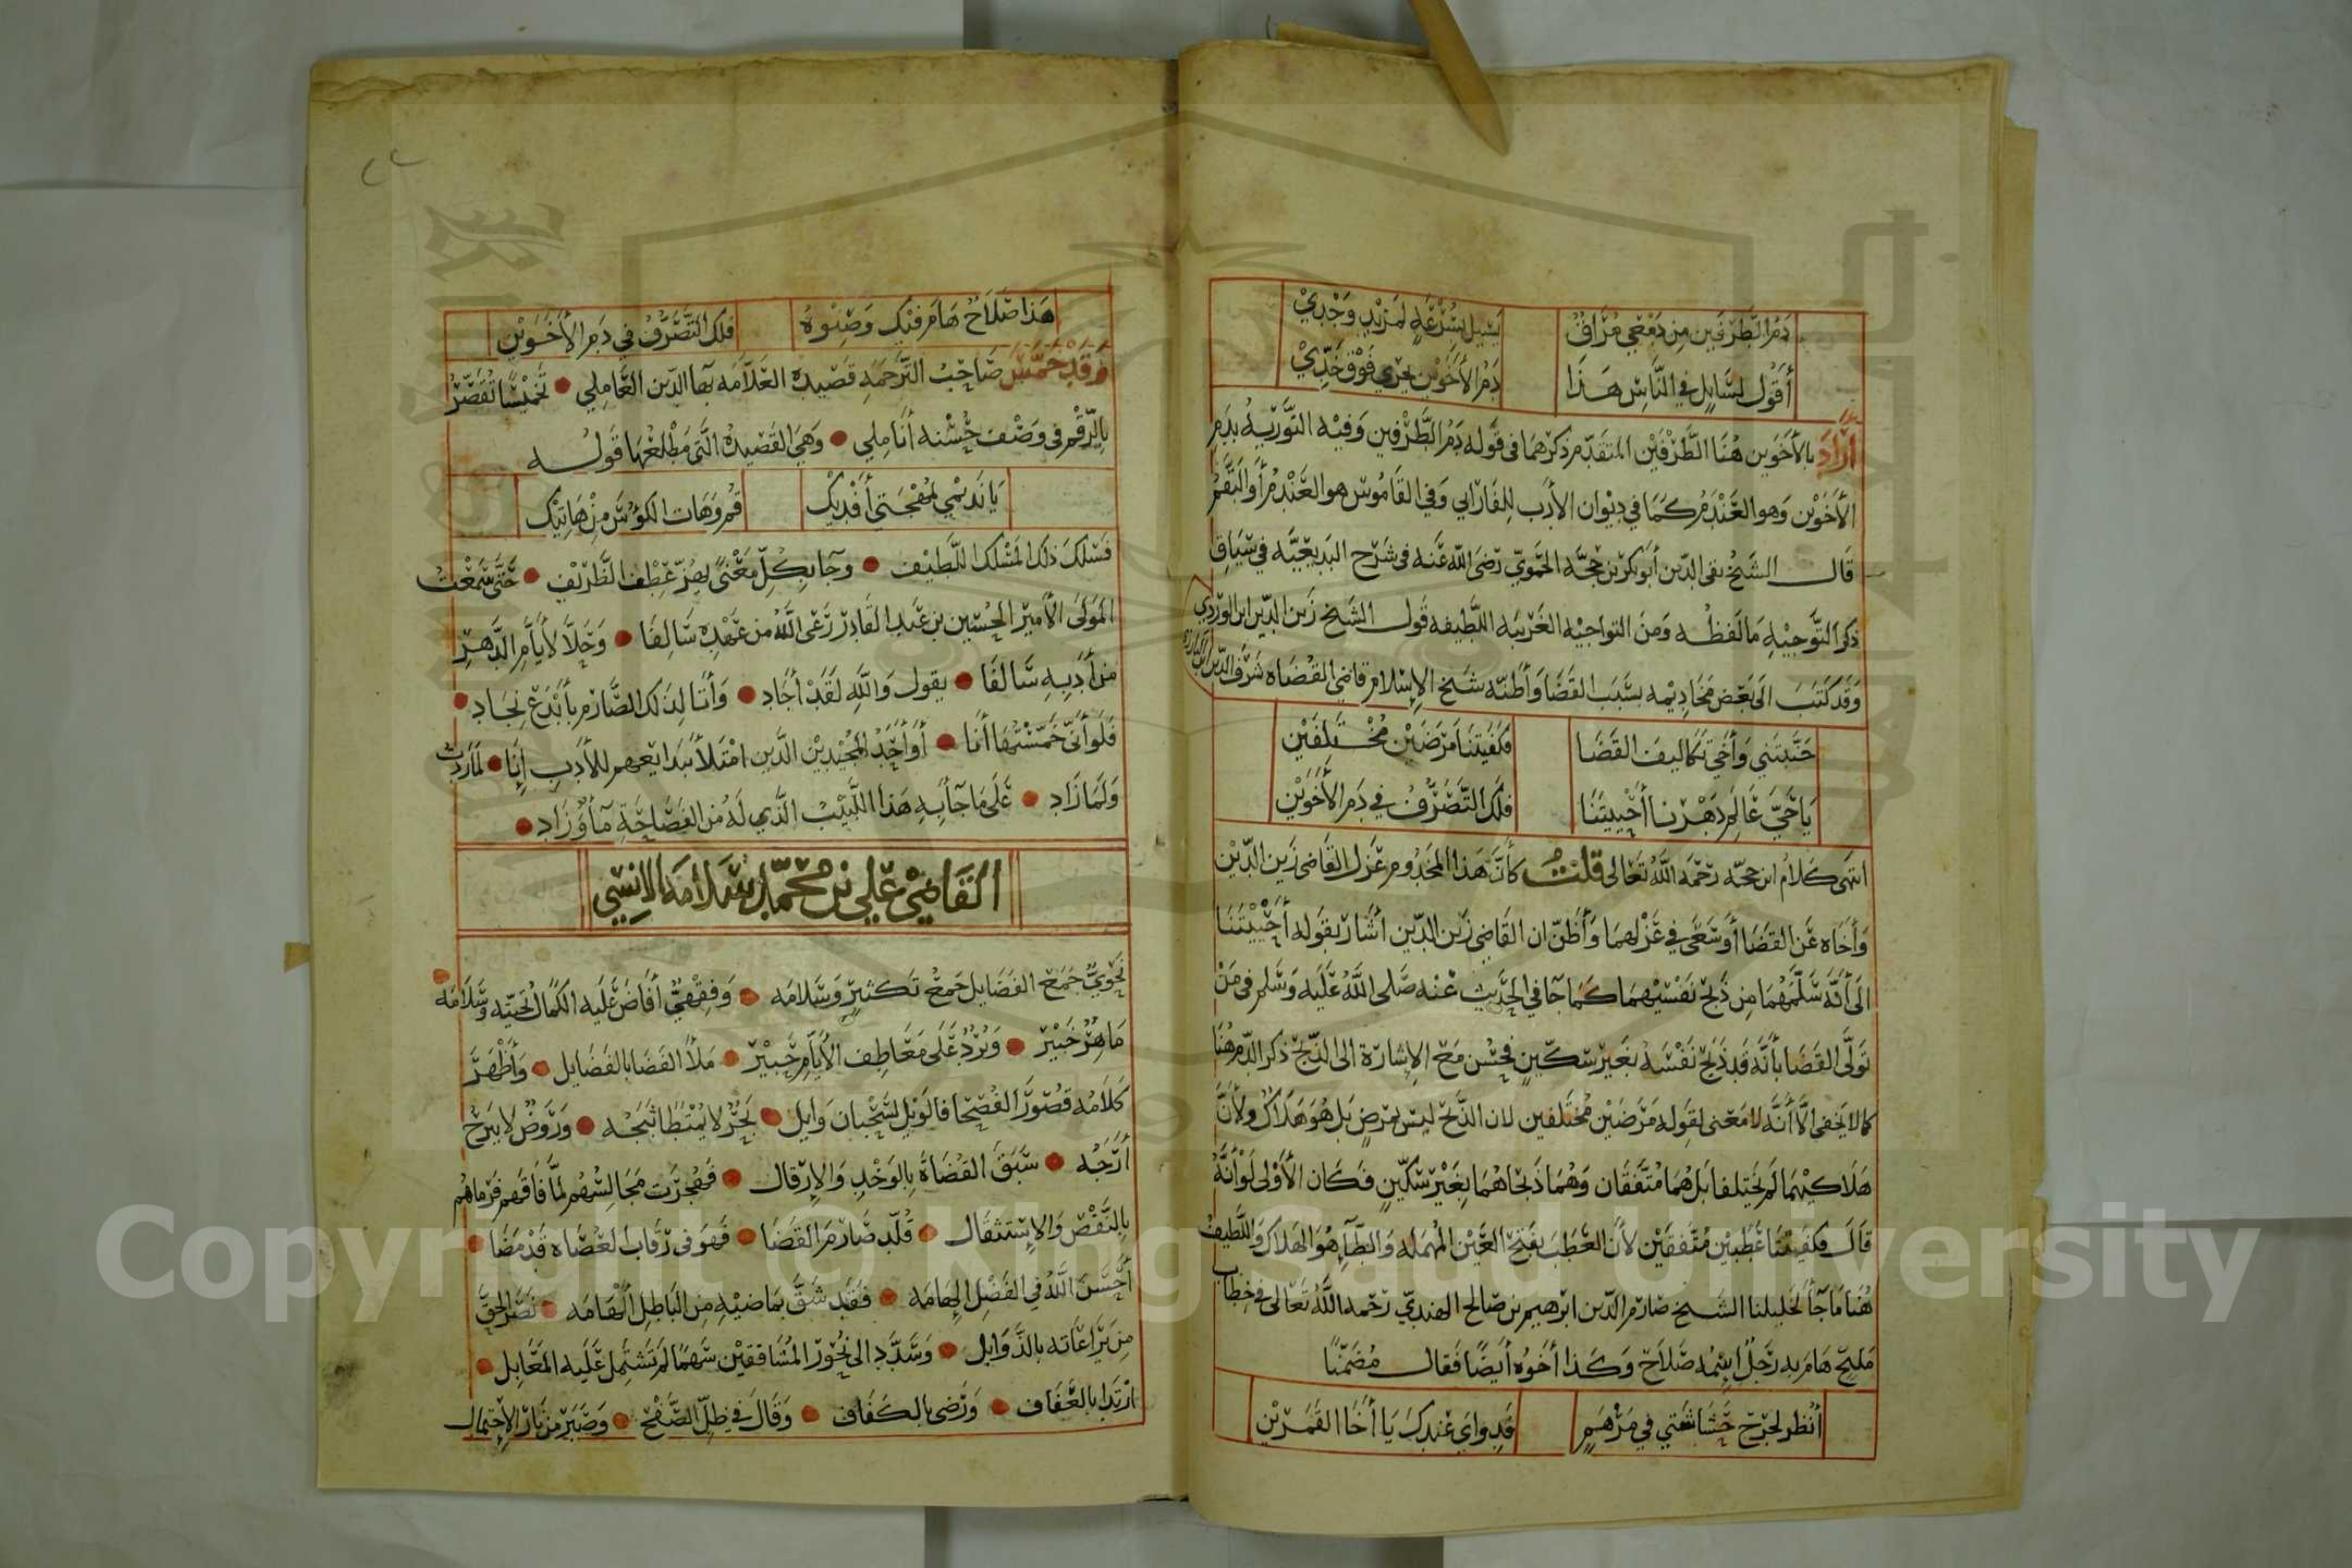 دم الطرفين من دمعي مراق يسيل بسرعة لمزيد وجدي
أقول لسايل في الناس هذا دم الأخوين يجري فوق خدي
أراد بالأخوين هنا الطرفين المتقدم ذكرهما في قوله دم الطرفين وفيه التورية بدم
الأخوين وهو العندم كما في ديوان الأدب للفارابي وفي القاموس هو العندم أو البقم
قال الشيخ تقي الدين أبو بكر بن حجه الحموي رضي الله عنه في شرح البديعيه في سياق
ذكر التوجيه ما لفظه ومن التواجيه الغريبه اللطيفه قول الشيخ زين الدين ابن الوردي
وقد كتب الى بعض مخاديمه بسبب القضا وأظنه شيخ الإسلام قاضي القضاه شرف الدين ابن البارزي
جنبتني وأخي تكاليف القضا فكفيتنا مرضين مختلفين
يا حي عالم دهرنا أحييتنا فلك التصرف في دم الأخوين
انتهى كلام ابن حجه رحمه الله تعالى قلت كأن هذا المخدوم عزل القاضي زين الدين
وأخاه عن القضا أو سعى في عزلهما وأظن ان القاضي زين الدين أشار بقوله أحييتنا
الى أنه سلمهما من ذبح نفسيهما كما جا في الحديث عنه صلى الله عليه وسلم في من
تولى القضا بأنه قد ذبح نفسه بغير سكين فحسن مع الإشارة الى الذبح ذكر الدم هنا
كما لا يخفى الا أنه لا معنى لقوله مرضين مختلفين لان الذبح ليس بمرض بل هو هلاك ولأن
هلاكيهما لم يختلفا بل هما متفقان وهما ذبحاهما بغير سكين فكان الأولى لو أنه
قال فكفيتنا عطبين متفقين لأن العطب بفتح العين المهمله والطآ هو الهلاك واللطيف
هنا ما جآ لخليلنا الشيخ صارم الدين ابرهيم بن صالح الهندي رحمه الله تعالى في خطاب
مليح هام به رجل اسمه صلاح وكذا أخوه أيضا فقال مضمنا
أنظر لجرح حشاشتي في مرهم فدواي عندك يا أخا القمرين
هذا صلاح هام فيك وصنوه فلك التصرف في دم الأخوين
وقد خمس صاحب الترجمه قصيدة العلامه بها الدين العاملي تخميسا تقصر
بالرقم في وصف حسنه أناملي وهي القصيدة التي مطلعها قوله
يا نديمي بمهجتي أفديك قم وهات الكؤس من هاتيك
فسلك ذلك المسلك اللطيف وجآ بكل معنى يهز عطف الظريف حتى سمعت
المولى الأمير الحسين بن عبد القادر رعى الله من عهده سالفا وحلا لأيام الدهر
من أدبه سالفا يقول والله لقد أجاد وأتا لذلك الصارم بأبدع نجاد
فلو أني خمستها أنا أو أحد المجيدين الذين امتلأ ببدايعهم للأدب إنا لما زدت
ولما زاد على ما جآ به هذا اللبيب الذي له من الفصاحة مآؤ وزاد
القاضي علي بن محمد بن سلامه الانسي
نحوي جمع الفضايل جمع تكثير وسلامه وفقهي أفاض عليه الكمال تحيته وسلامه
ماهر خبير وبرد على معاطف الأيام حبير ملأ الفضا بالفضايل وأظهر
كلامه قصور الفصحا فالويل لسحبان وايل بحر لا يمتطا ثبجه وروض لا يبرح
أرجه سبق القضاة بالوخد والإرقال فهجرت مجالسهم لما فاقهم فرماهم
بالنقص والإستثقال قلد صارم القضا فهو في رقاب العصاه قد مضا
أحسن الله في الفضل إلهامه فقد شق بماضيه من الباطل ألهامه نصر الحق
من يراعاته بالذوابل وسدد الى نحور المشاققين سهما لم تشتمل عليه المعابل
ارتدا بالعفاف ورضي بالكفاف وقال في ظل الصفح وصبر من نار الإحتمال
Copyright © King Saud University